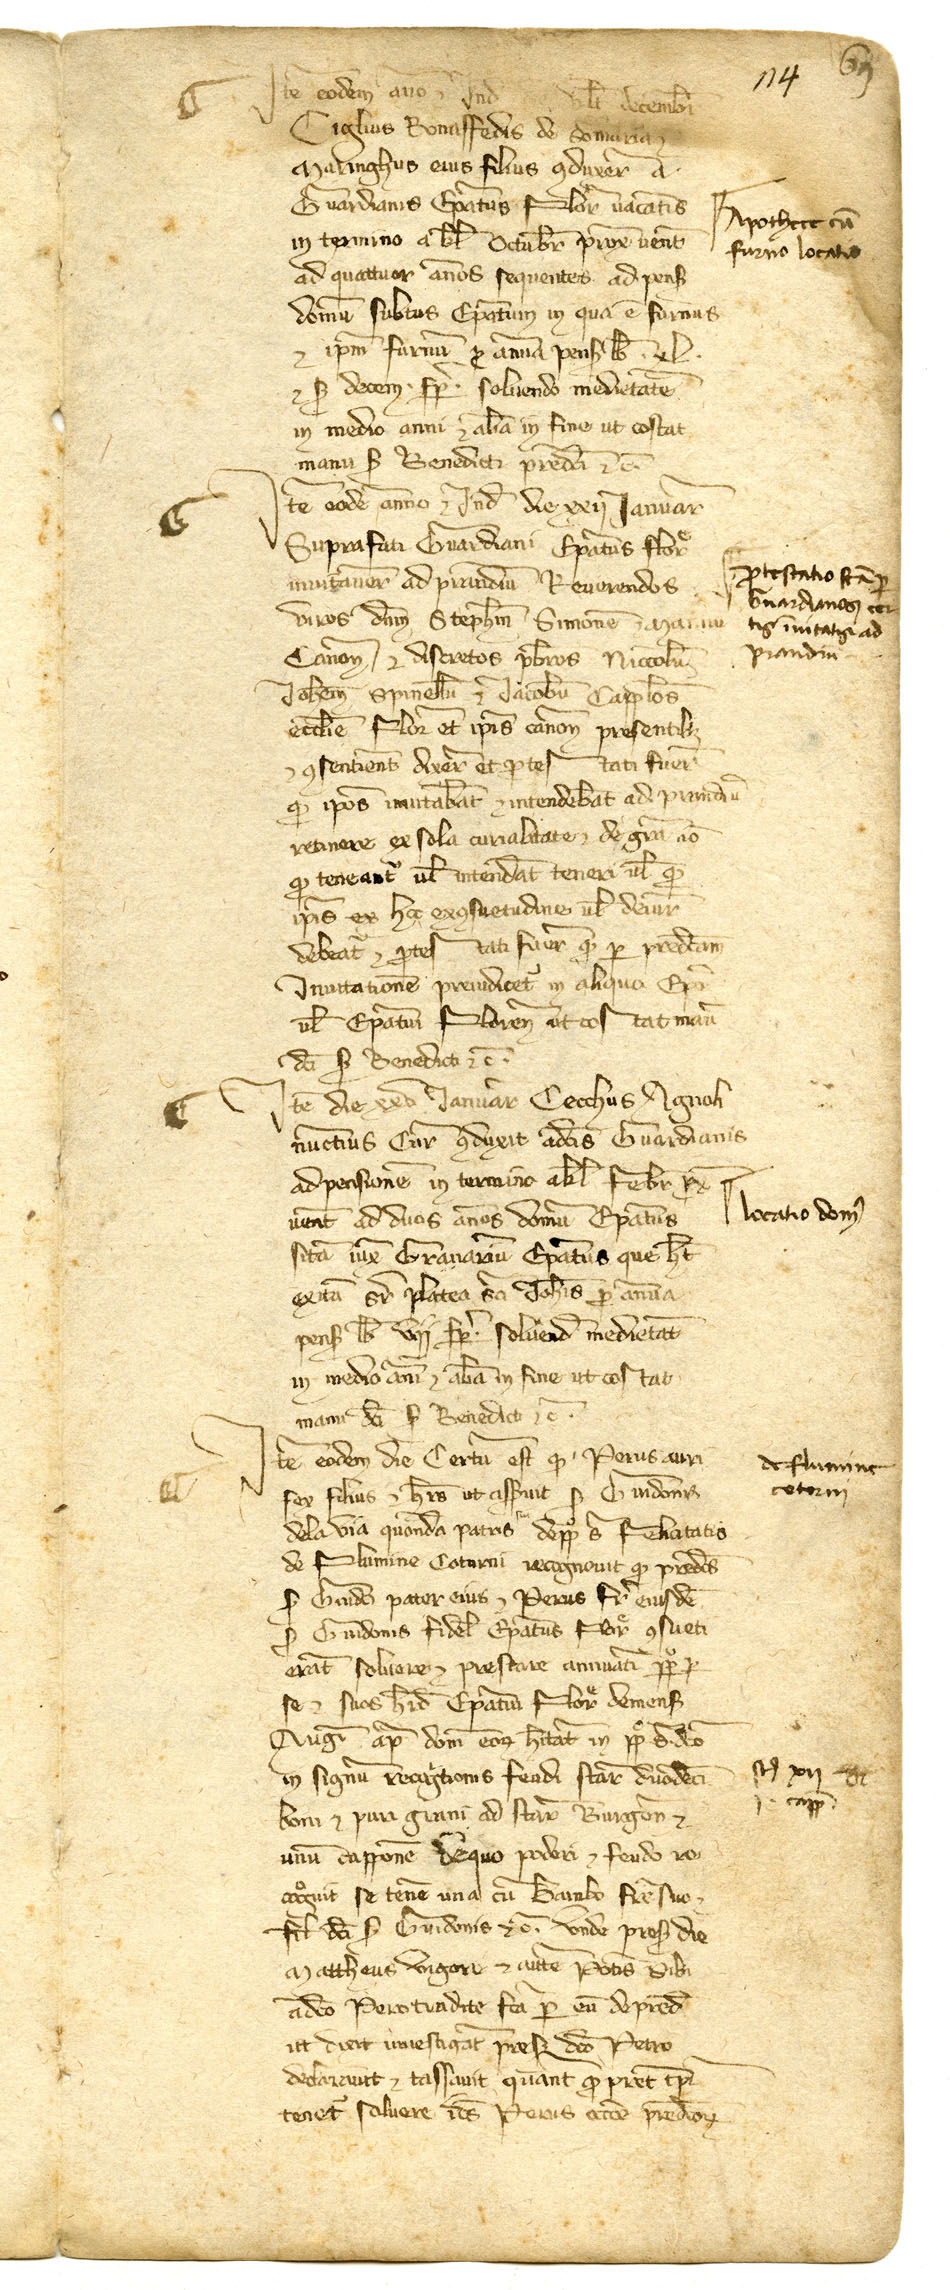 114
Ite eodem ano ⁊ Ind decembr
Ciglius Bonaffedis de
Maringhus eius filius 9duxer a
Guardianis Epatus Flor vacatis
in termino a kl Octubr prox vent
ad quattuor anos sequentes ad pens
domu subtus Epatum in qua e furnus
⁊ ipm furnu p annua pens lb xl
⁊ s decem fp soluendo medietate
in medio anni ⁊ alia in fine ut costat
manu s Benedicti predci ⁊ c.
Apothece cu
furno locatio
Ite eode anno ⁊ Ind die xxij Januar
Suprafati Guardiani Epatus flor
invitaver ad prandiu Reverendos
viros dnm Stephm Simone ⁊
Canon ⁊ discretos pbros Niccolu
Johem Spinellu ⁊ Jacobu Capplos
ecclie Flor et ipis canon presentib
⁊ 9sentient dixer et protestati fuer
q ipos invitabat ⁊ intendebat ad prandiu
retinere ex sola curialitate ⁊ de gra no
q teneant ul intendat teneri ul q
ipis ex hoc ex 9suetudine ul de iur
debeat ⁊ protestati fuer q p predcam
Invitatione preiudicet in aliquo Epo
ul Epatui Floren ut costat manu
dci s Benedicti ⁊ c.
protestatio fca p
Guardianos cer
tis invitatis ad
prandiu
Ite die xxv Januar Cecchus Agnoli
nuctius Cur 9duxit a dcis Guardianis
ad pensionem in termino a kl Febr px
vent ad duos anos domu Epatus
sita iux Granariu Epatus que ht
exitu sr platea sci Johis p annua
pens lb viij fp soluend medietat
in medio ani ⁊ alia in fine ut costat
manu dci s Benedicti ⁊ c.
locatio dom
Ite eodem die Certu est q Perus auri
fex filius ⁊ hrs ut asseruit s Guidonis
dela via quonda patris sui de pp s Felicitatis
de Flumine Coturni recognovit q predcs
s Guido pater eius ⁊ Perus fr eiusde
s Guidonis fidel Epatus Flor 9sueti
erat soluere ⁊ prestare annuati pp
se ⁊ suos hrd Epatui Flor de mens
Augi ap dom eor hitat in pp d dco
in signu recogtionis feudi star duodeci
boni ⁊ puri grani ad star Burgen ⁊
unu cappone de quo poderi ⁊ feudo re
cogvit se tene una cu Bambo fre suo ⁊
fil dci s Guidonis ⁊ c. unde pres die
Mattheus
a dco Pero tradite fca p eu de pred
ut dixit investigat pres dco Petro
declaravit ⁊ tassavit quant p pret tpr
tenet soluere ids Perus predcor
de flumine
coturni
st xii
j capp